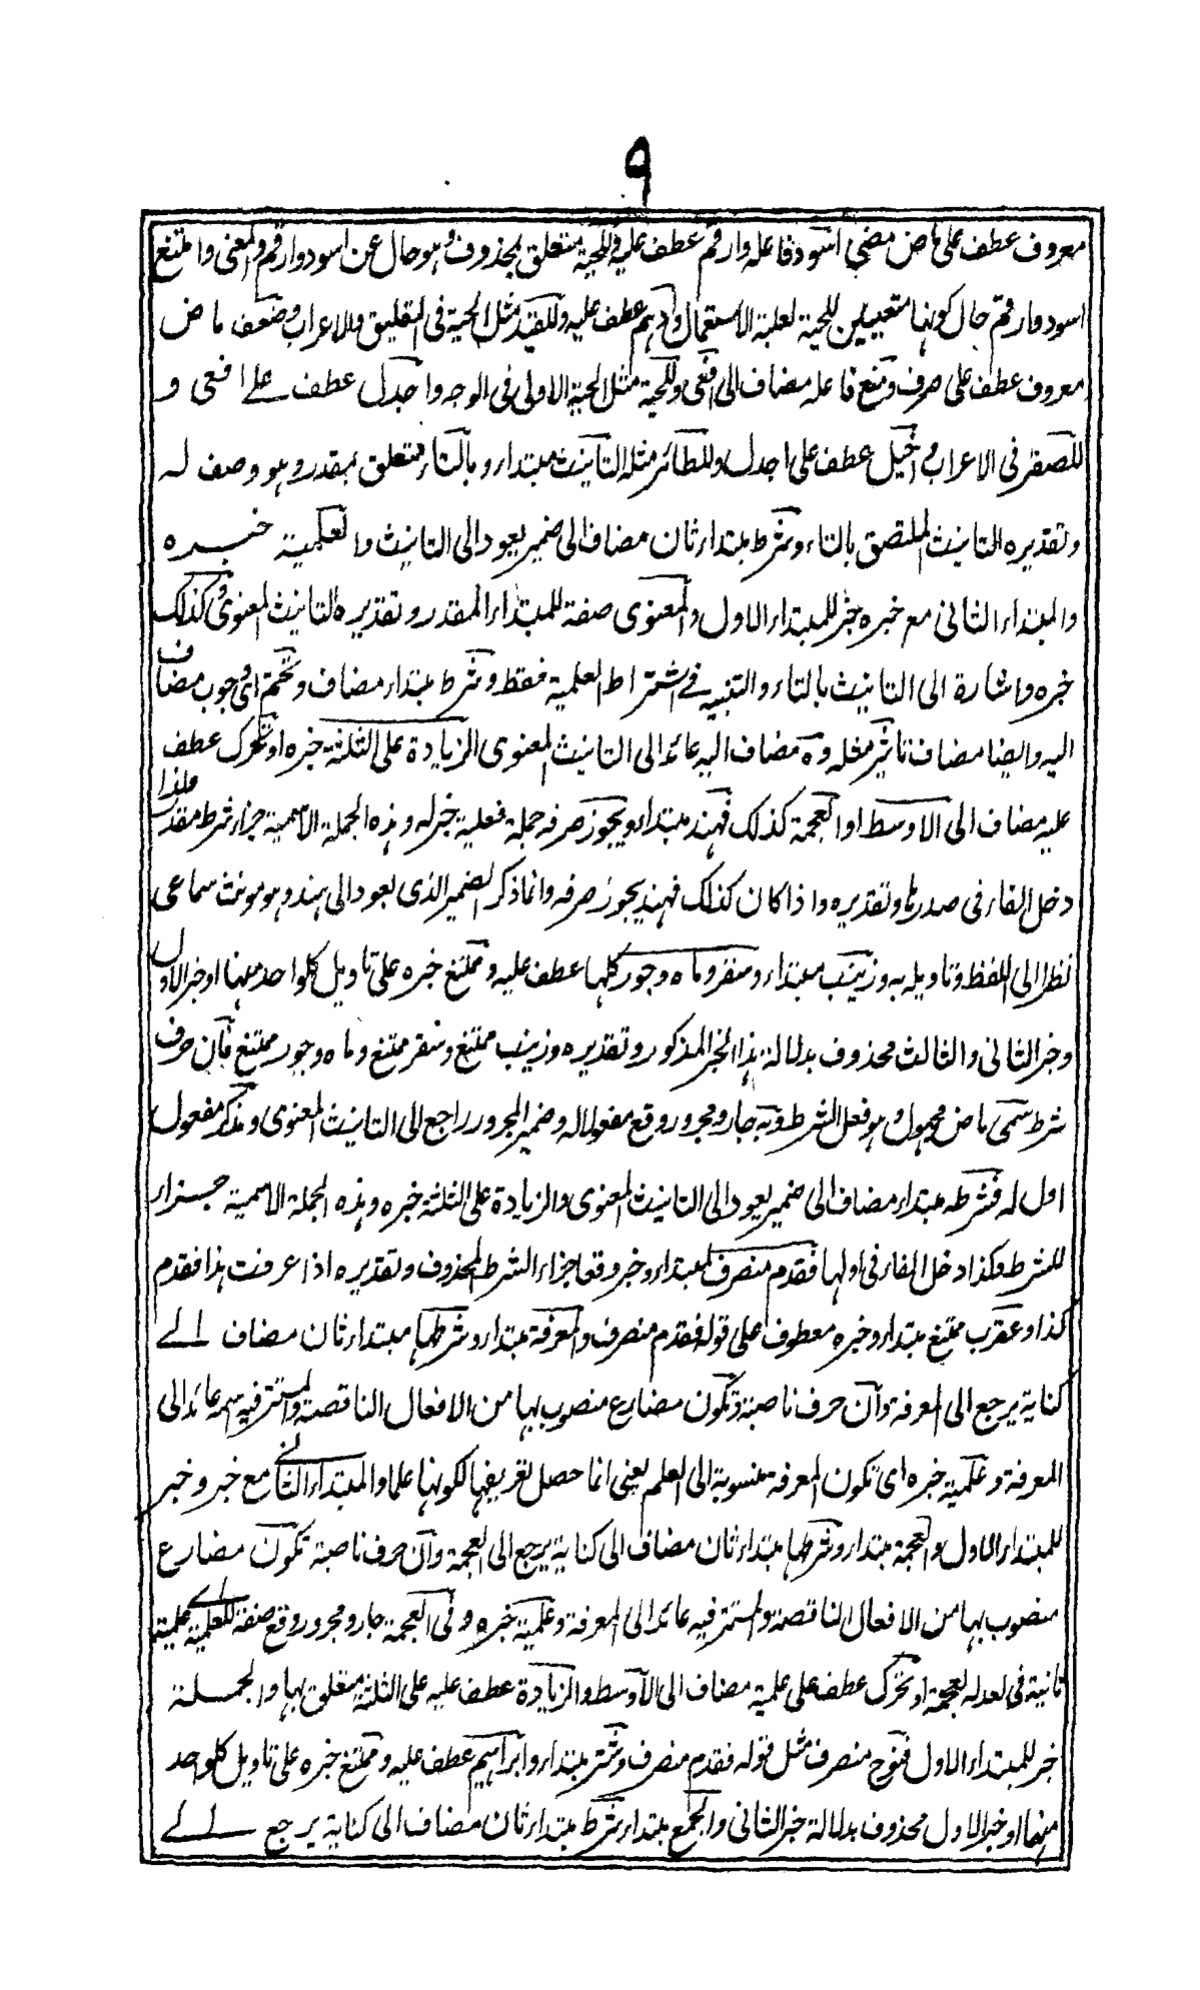 ٩
معروف عطف على ماض مضى اسود فاعله وارقم عطف عليه وللحية متعلق بمحذوف وهو حال عن اسود وارقم والمعنى وامتنع
اسود وارقم حال كونهما متعينين للحية لغلبة الاستعمال وادهم عطف عليه وللقيد مثل للحية فى التعليق والاعراب وضعف ماض
معروف عطف على صرف ومنع فاعله مضاف الى افعى وللحية مثل للحية الاولى فى الوجه واجدل عطف على افعى و
للصقر فى الاعراب واخيل عطف على اجدل وللطائر مثله التانيث مبتداء وبالتاء متعلق بمقدر وهو وصف له
وتقديره التانيث الملتصق بالتاء وشرط مبتداء ثان مضاف الى ضمير يعود الى التانيث والعلمية خبره
والمبتداء الثانى مع خبره خبر للمبتداء الاول والمعنوى صفة للمبتداء المقدر وتقديره التانيث المعنوى وكذلك
خبره واشارة الى التانيث بالتاء والتنبيه فى اشتراط العلمية فقط وشرط مبتداء مضاف وتحتم اى وجوب مضاف
اليه وايضا مضاف تاثير مثله وه مضاف اليه عائد الى التانيث المعنوى الزيادة على الثلثة خبره او تحرك عطف
عليه مضاف الى الاوسط او العجمة كذلك فهند مبتداء ويجوز صرفه جملة فعلية خبر له وهذه الجملة الاسمية جزاء شرط مقدر فلذا
دخل الفاء فى صدرها وتقديره واذا كان كذلك فهند يجوز صرفه وانما ذكر الضمير الذى يعود الى هند وهو مونث سماعى
نظرا الى اللفظ وتاويله به وزينب مبتداء وسقر وماه وجور كلها عطف عليه وممتنع خبره على تاويل كلواحد منها او خبر الاول
وخبر الثانى والثالث محذوف بدلالة هذا الخبر المذكور وتقديره وزينب ممتنع وسقر ممتنع وماه وجور ممتنع فان حرف
شرط سمى ماض مجهول وهو فعل الشرط وبه جار ومجرور وقع مفعولا له وضمير المجرور راجع الى التانيث المعنوى ومذكر مفعول
اول له فشرطه مبتداء مضاف الى ضمير يعود الى التانيث المعنوى والزيادة على الثلثة خبره وهذه الجملة الاسمية جزاء
للشرط فلذا دخل الفاء فى اولها فقدم منصرف المبتداء وخبر وقعا جزاء الشرط المحذوف وتقديره اذا عرفت هذا فقدم
كذا وعقرب ممتنع مبتداء وخبره معطوف على قوله فقدم منصرف والمعرفة مبتداء وشرطها مبتداء ثان مضاف الى
كناية يرجع الى المعرفة وان حرف ناصبة وتكون مضارع منصوب بها من الافعال الناقصة والمستتر فيه اسمه عائد الى
المعرفة وعلمية خبره اى تكون المعرفة منسوبة الى العلم يعنى انما حصل تعريفها لكونها علما والمبتداء الثانى مع خبر وخبر
للمبتداء الاول والعجمة مبتداء وشرطها مبتداء ثان مضاف الى كناية يرجع الى العجمة وان حرف ناصبة تكون مضارع
منصوب بها من الافعال الناقصة والمستتر فيه عائد الى المعرفة وعلمية خبره وفى العجمة جار ومجرور وقع صفة للعلمية اى علمية
ثانية فى العجمة او تحرك عطف على علمية مضاف الى الاوسط والزيادة عطف عليه على الثلثة متعلق بها والجملة
خبر للمبتداء الاول فنوح منصرف مثل قوله فقدم منصرف وشتر مبتداء وابراهيم عطف عليه وممتنع خبره على تاويل كلواحد
منهما او خبر الاول محذوف بدلالة خبر الثانى والجمع مبتداء شرط مبتداء ثان مضاف الى كناية يرجع الى